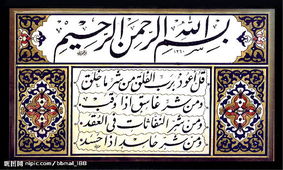 بسم الله الرحمن الرحيم
قل اعوذ برب الفلق من شر ما خلق
ومن شر غاسق اذا وقب
ومن شر النفاثات في العقد
ومن شر حاسد اذا حسد
昵图网 nipic.com/bbmai_188